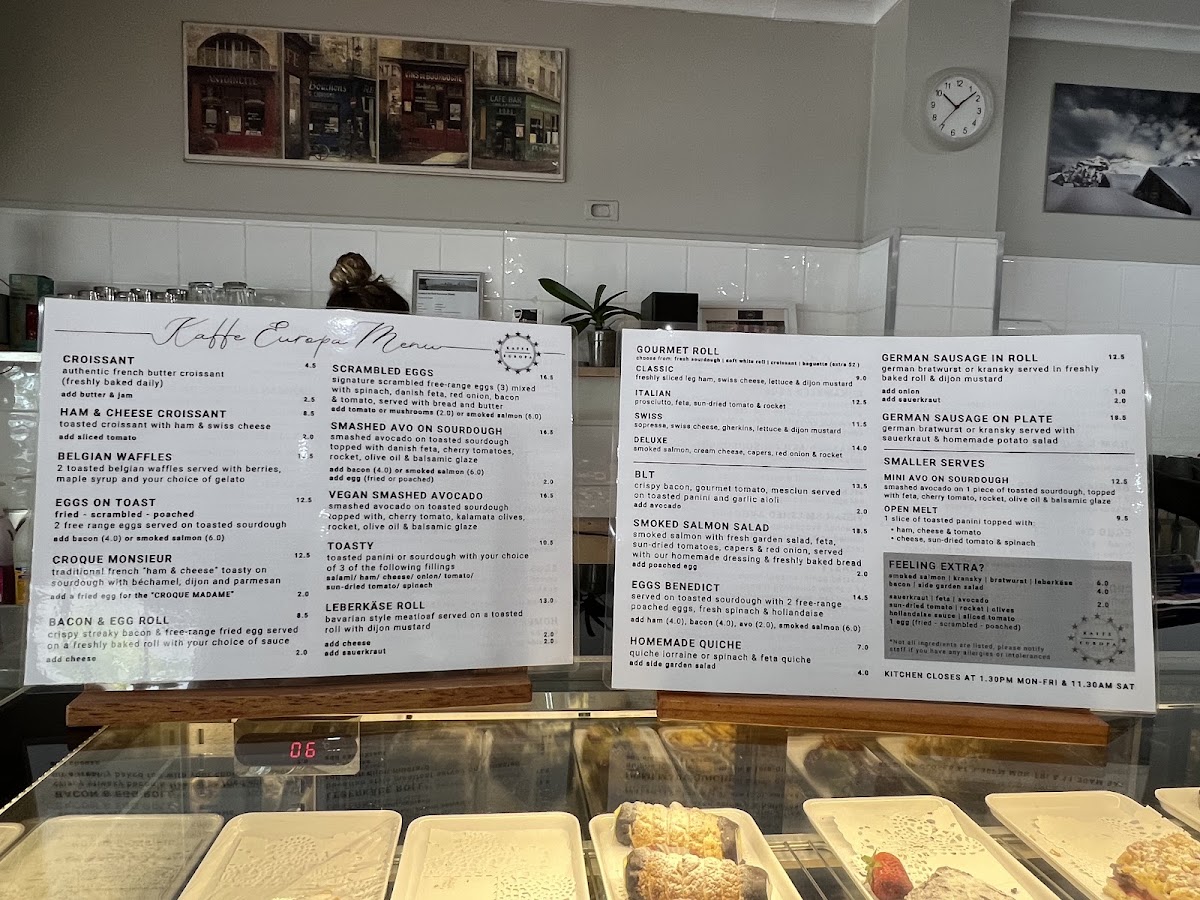 ANTOINETTE
VINS de BOURGOGNE
CAFE-BAR
Kaffe Europa Menu
KAFFE
EUROPA
CROISSANT 4.5
authentic french butter croissant
(freshly baked daily)
add butter & jam 2.5
HAM & CHEESE CROISSANT 8.5
toasted croissant with ham & swiss cheese
add sliced tomato 2.0
BELGIAN WAFFLES
2 toasted belgian waffles served with berries,
maple syrup and your choice of gelato
EGGS ON TOAST 12.5
fried - scrambled - poached
2 free range eggs served on toasted sourdough
add bacon (4.0) or smoked salmon (6.0)
CROQUE MONSIEUR 12.5
traditional french "ham & cheese" toasty on
sourdough with béchamel, dijon and parmesan
add a fried egg for the "CROQUE MADAME" 2.0
BACON & EGG ROLL 8.5
crispy streaky bacon & free-range fried egg served
on a freshly baked roll with your choice of sauce
add cheese 2.0
SCRAMBLED EGGS 16.5
signature scrambled free-range eggs (3) mixed
with spinach, danish feta, red onion, bacon
& tomato, served with bread and butter
add tomato or mushrooms (2.0) or smoked salmon (6.0)
SMASHED AVO ON SOURDOUGH 16.5
smashed avocado on toasted sourdough
topped with danish feta, cherry tomatoes,
rocket, olive oil & balsamic glaze
add bacon (4.0) or smoked salmon (6.0)
add egg (fried or poached) 2.0
VEGAN SMASHED AVOCADO 16.5
smashed avocado on toasted sourdough
topped with, cherry tomato, kalamata olives,
rocket, olive oil & balsamic glaze
TOASTY 10.5
toasted panini or sourdough with your choice
of 3 of the following fillings
salami/ ham/ cheese/ onion/ tomato/
sun-dried tomato/ spinach
LEBERKÄSE ROLL 13.0
bavarian style meatloaf served on a toasted
roll with dijon mustard
add cheese 2.0
add sauerkraut 2.0
GOURMET ROLL
choose from: fresh sourdough | soft white roll | croissant | baguette (extra $2 )
CLASSIC 9.0
freshly sliced leg ham, swiss cheese, lettuce & dijon mustard
ITALIAN 12.5
prosciutto, feta, sun-dried tomato & rocket
SWISS 11.5
sopressa, swiss cheese, gherkins, lettuce & dijon mustard
DELUXE 14.0
smoked salmon, cream cheese, capers, red onion & rocket
BLT 13.5
crispy bacon, gourmet tomato, mesclun served
on toasted panini and garlic aioli
add avocado 2.0
SMOKED SALMON SALAD 18.5
smoked salmon with fresh garden salad, feta,
sun-dried tomatoes, capers & red onion, served
with our homemade dressing & freshly baked bread
add poached egg 2.0
EGGS BENEDICT 14.5
served on toasted sourdough with 2 free-range
poached eggs, fresh spinach & hollandaise
add ham (4.0), bacon (4.0), avo (2.0), smoked salmon (6.0)
HOMEMADE QUICHE 7.0
quiche lorraine or spinach & feta quiche
add side garden salad 4.0
GERMAN SAUSAGE IN ROLL 12.5
german bratwurst or kransky served in freshly
baked roll & dijon mustard
add onion 1.0
add sauerkraut 2.0
GERMAN SAUSAGE ON PLATE 18.5
german bratwurst or kransky served with
sauerkraut & homemade potato salad
SMALLER SERVES
MINI AVO ON SOURDOUGH 12.5
smashed avocado on 1 piece of toasted sourdough, topped
with feta, cherry tomato, rocket, olive oil & balsamic glaze
OPEN MELT 9.5
1 slice of toasted panini topped with:
• ham, cheese & tomato
• cheese, sun-dried tomato & spinach
FEELING EXTRA?
smoked salmon | kransky | bratwurst | leberkäse 6.0
bacon | side garden salad 4.0
sauerkraut | feta | avocado
sun-dried tomato | rocket | olives 2.0
hollandaise sauce | sliced tomato
1 egg (fried - scrambled - poached)
*Not all ingredients are listed, please notify
staff if you have any allergies or intolerances
KAFFE
EUROPA
KITCHEN CLOSES AT 1.30PM MON-FRI & 11.30AM SAT
06